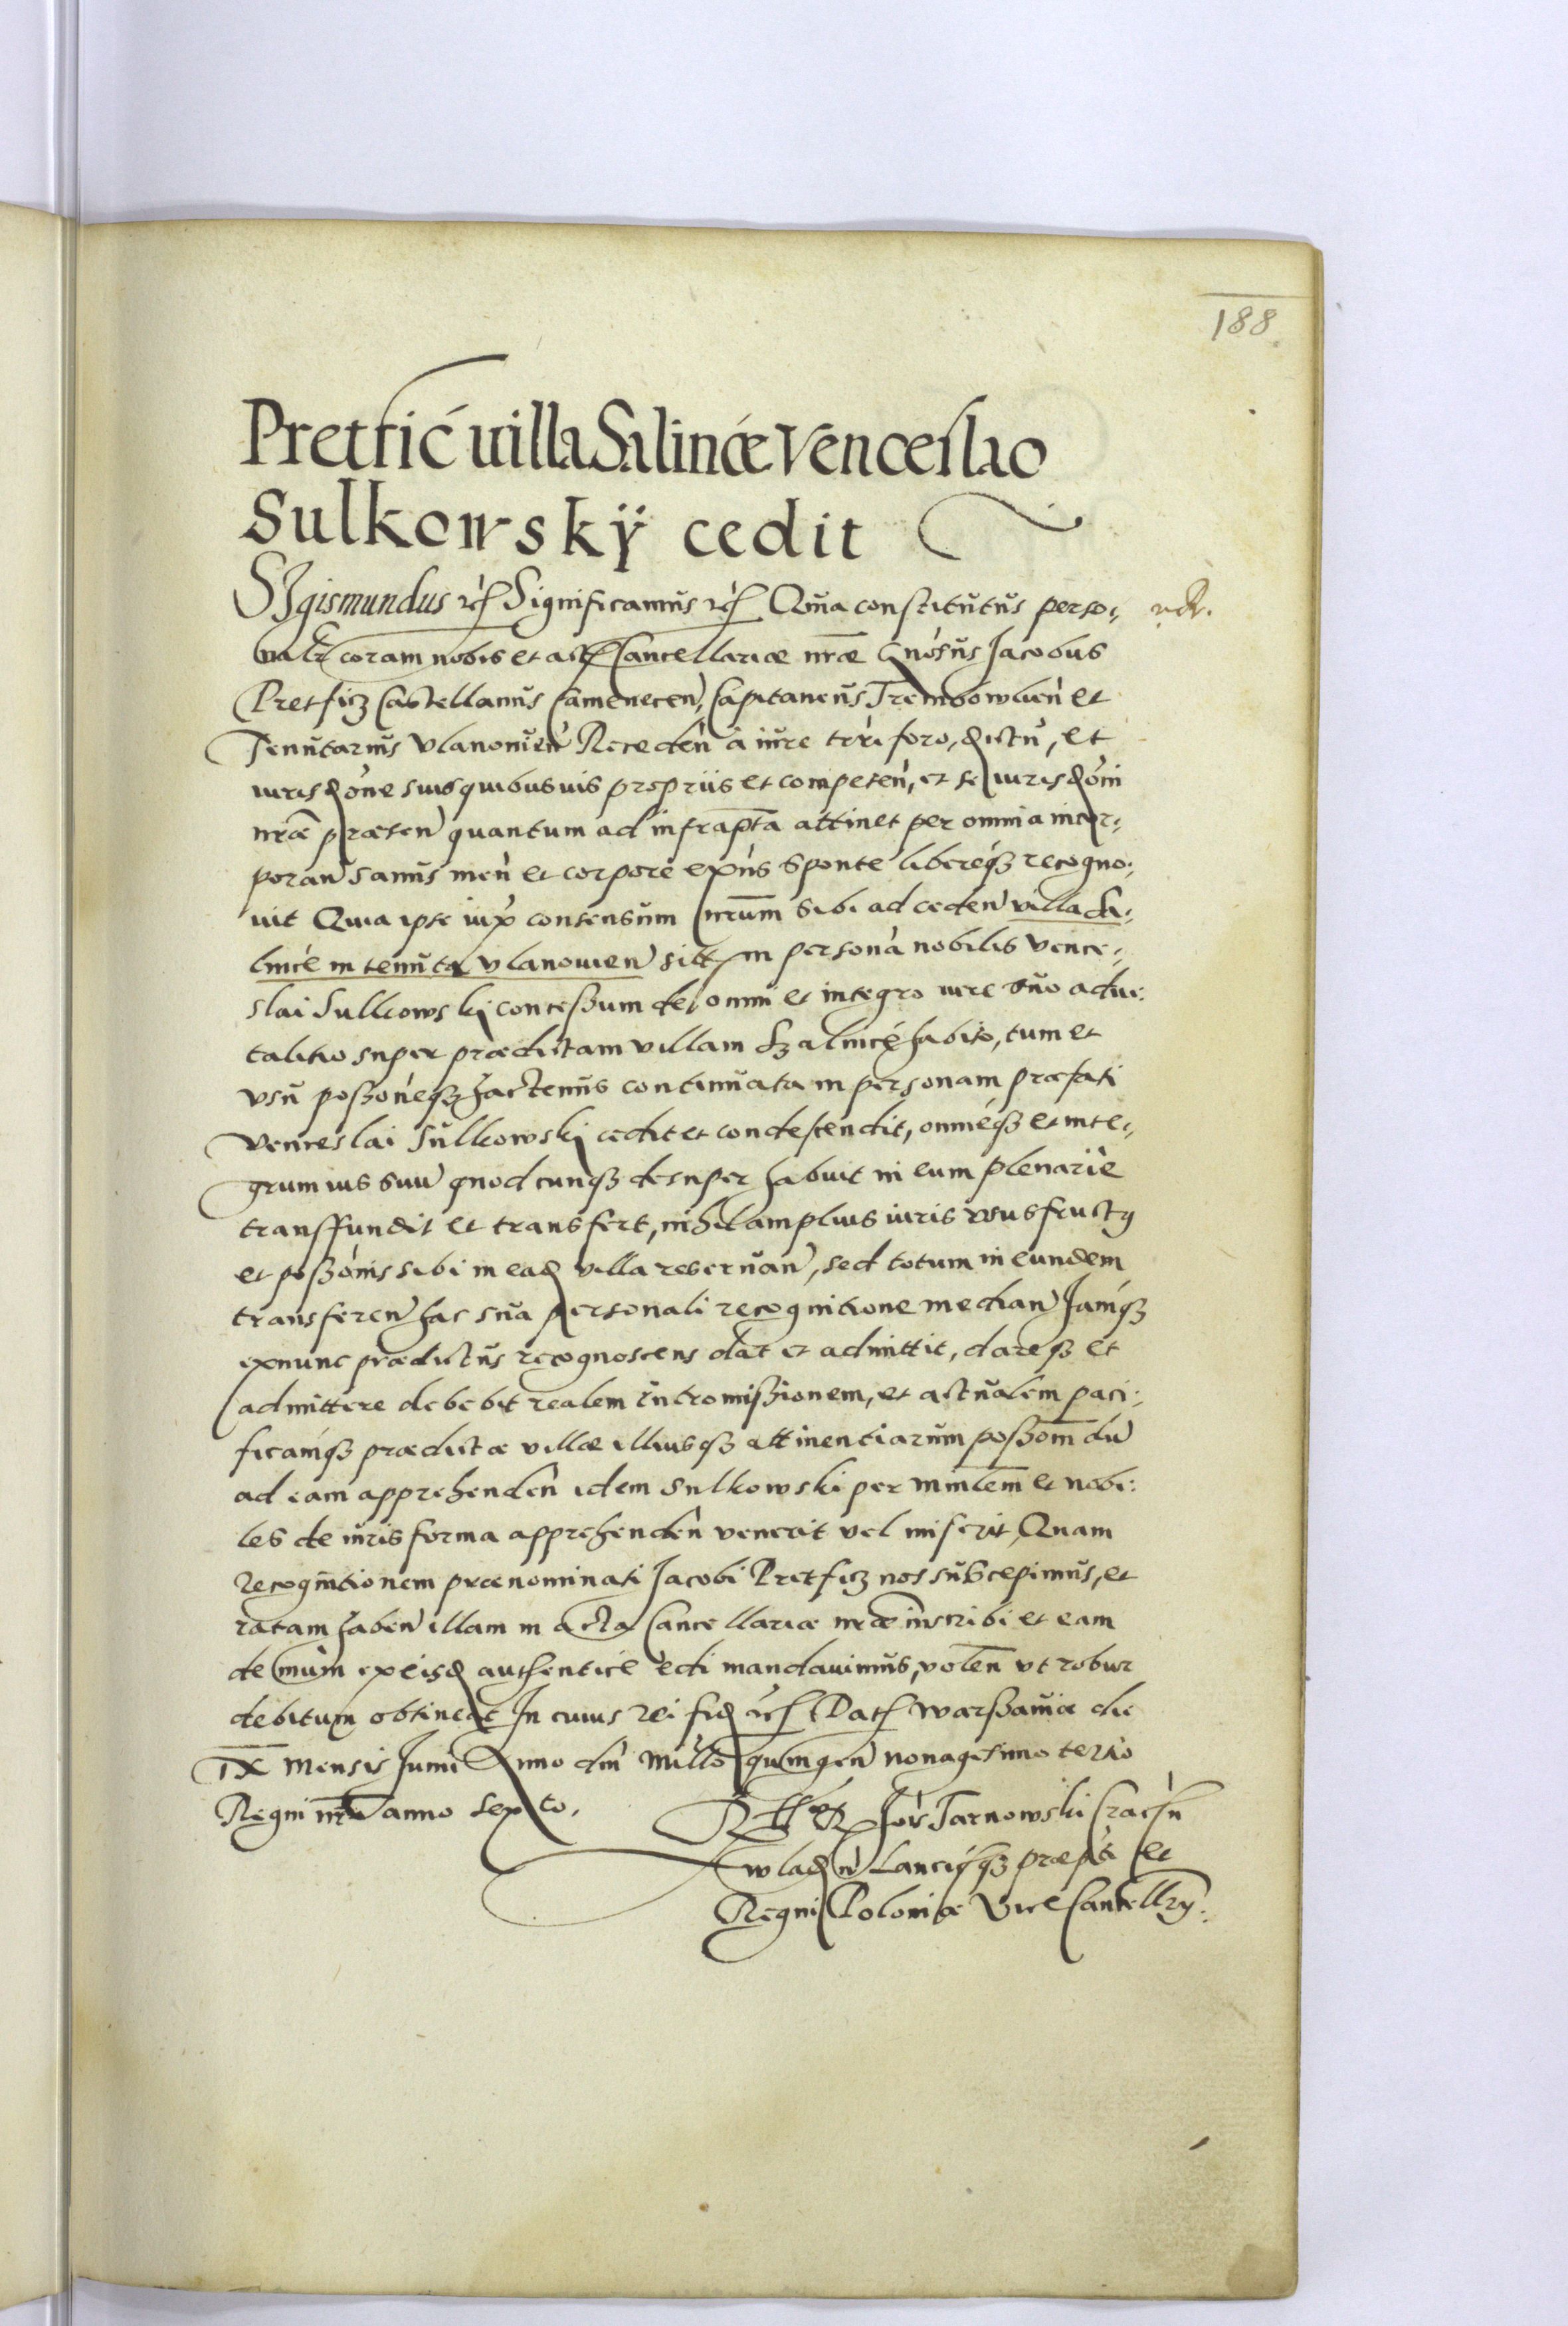 188
Pretfic villa Salincæ Venceslao
Sulkowskÿ cedit
SIgismundus etc Significamus etc Quia constitutus perso-
nalr coram nobis et act Cancellariæ nræ Gnosus Jacobus
Pretficz Castellanus Camenecen, Capitaneus Trembowlien et
Tenutarius Vlanouien Receden à iure terri foro, districtu, et
iurisdone suis quibusuis propriis et competen, et se iurisdoni
nræ præsen quantum ad infrapta attinet per omnia incor-
poran sanus men et corpore exns Sponte libereqз recogno-
uit Quia ipse iux consensum nrum sibi ad ceden villa Sa-
lince in tenuta Vlanouien sitt in persona nobilis Vence-
slai Sulkowski concessum de omni et integro iure suo adui-
talitio super prædictam villam Szalince habito, tum et
vsu possoneqз hactenus continuata in personam præfati
Venceslai Sulkowski cedit et condescendit, omneqз et inte-
grum ius suu quodcunqз desuper habuit in eum plenarie
transffundit et transfert, nihil amplius iuris vsusfructus
et possonis sibi in ead villa reseruan, sed totum in eundem
transferen hac sua personali recognitione median Jamqз
exnunc prædictus recognoscens dat et admittit, dareqз et
admittere debebit realem intromissionem, et actualem paci-
ficamqз prædictæ villæ illiusqз attinentiarum possom du
ad eam apprehenden idem Sulkowski per minlem et nobi-
les de iuris forma apprehenden venerit vel miserit, Quam
recognitionem prænominati Jacobi Pretficz nos suscepimus, et
ratam haben illam in acta Cancellariæ nræ inscribi et eam
demum ex eisd authentice edi mandauimus, volen vt robur
debitum obtineat In cuius rei fid etc Dat Warssauiæ die
IX mensis Junii Anno dni Millo quingen nonagesimo tertio
Regni nri anno sexto.
Jois Tarnowski Cracn
Wladn Lanciqз præpti et
Regni Poloniæ Vicecancellrij